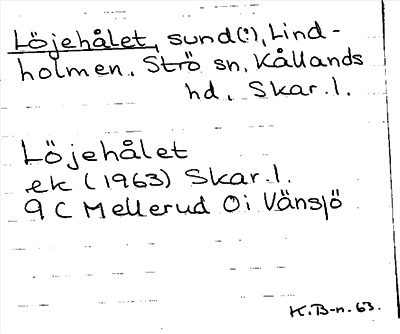 Löjehålet, sund(?), Lind-
holmen. Strö sn, Kållands
hd, Skar.l.
Löjehålet
ek (1963) Skar.l.
9 C Mellerud Oi Vänsjö
K.B-n. 63.